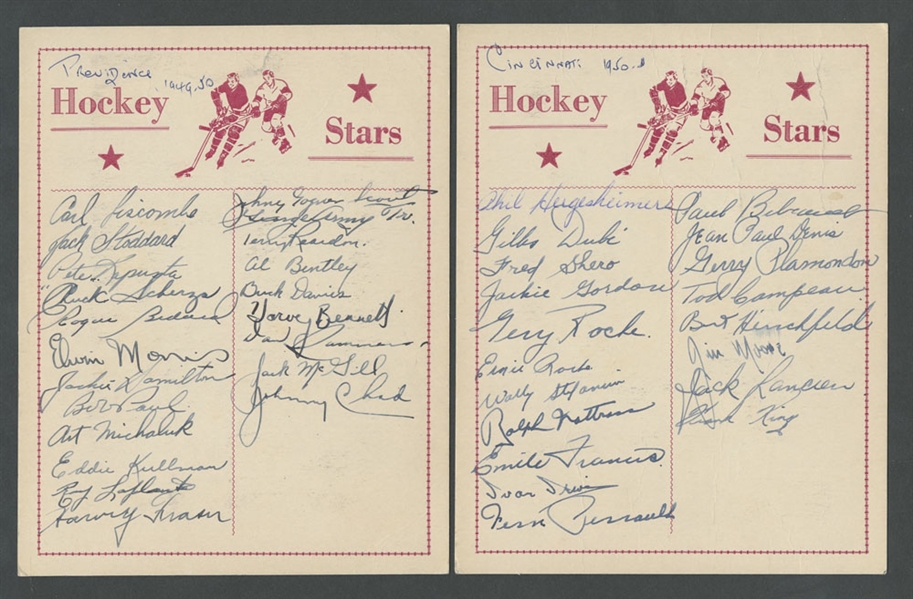 Providence
1949.50
Hockey
Stars
Carl Liscombe
Jack Stoddard
Pete Kapusta
"Chuck" Scherza
Roger Bedard
Edwin Morris
Jackie Hamilton
Bob Paul
Art Michaluk
Eddie Kullman
Roy Laplante
Harvey Fraser
Johnny
Terry Reardon.
Al Bentley
Buck Davies
Harvey Bennett
Jack McGill
Johnny Chad
Cincinnati 1950.1
Hockey
Stars
Phil Hergesheimer
Gilles Dubé
Fred Shero
Jackie Gordon
Gerry Roche.
Ernie Roche
Wally Stefaniw
Ralph Nattrass
Emile Francis.
Ivan Irwin
Fern Perreault
Paul Bibeault
Jean Paul Denis
Gerry Plamondon
Tod Campeau
Bert Hirschfeld
Jim Moore
Jack Lancien
Frank King